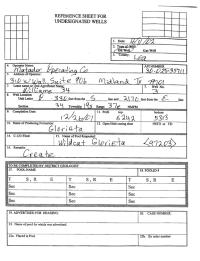 REFERENCE SHEET FOR
UNDESIGNATED WELLS
1. Date:
2. Type of Well:
Oil Well Gas Well
3. County:
Lea
4. Operator Name
API NUMBER
Matador Operating Co
30-025-
5. Address of Operator
310 W. Wall, Suite 906 Midland Tx 79701
6. Lease name or Unit Agreement Name
7. Well No.
Williams 34
3
8. Well Location
Unit Letter feet from the line and feet from the line
Section 34 Township 19s Range 37e NMPM
9. Completion Date
11. Perfs top bottom
6242
10. Name of Producing Formation
12. Open Hole casing shoe PBTD or TD
Glorieta
14. C-123 Filed:
15. Name of Pool Requested:
Wildcat Glorieta (97203)
16. Remarks:
Create
TO BE COMPLETED BY DISTRICT GEOLOGIST
17. POOL NAME
18. POOL ID #
T S, R E T S, R E T S, R E
Sec Sec Sec
Sec Sec Sec
Sec Sec Sec
19. ADVERTISED FOR HEARING
20. CASE NUMBER
21. Name of pool for which was advertised
22a. Placed in Pool
22b. By order number